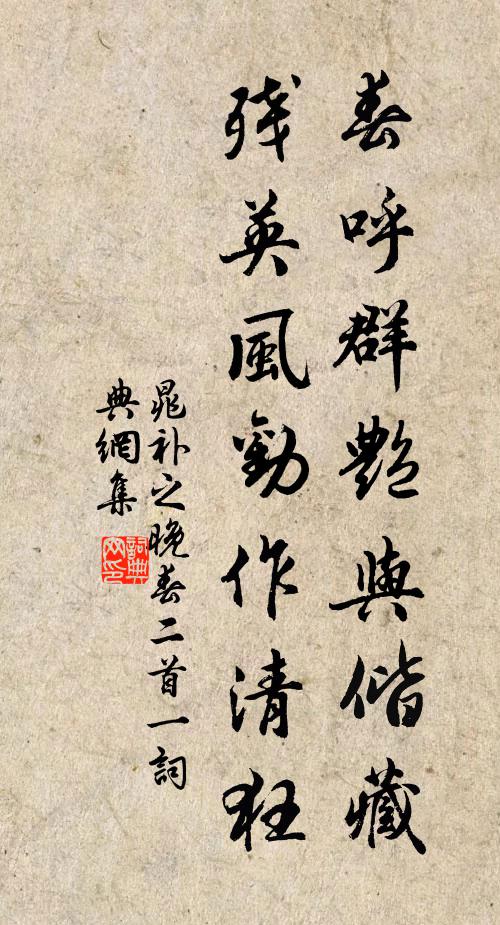 春呼群艷與偕藏
残英風勸作清狂
晁补之晚春二首一詞
典網集
詞典
网印